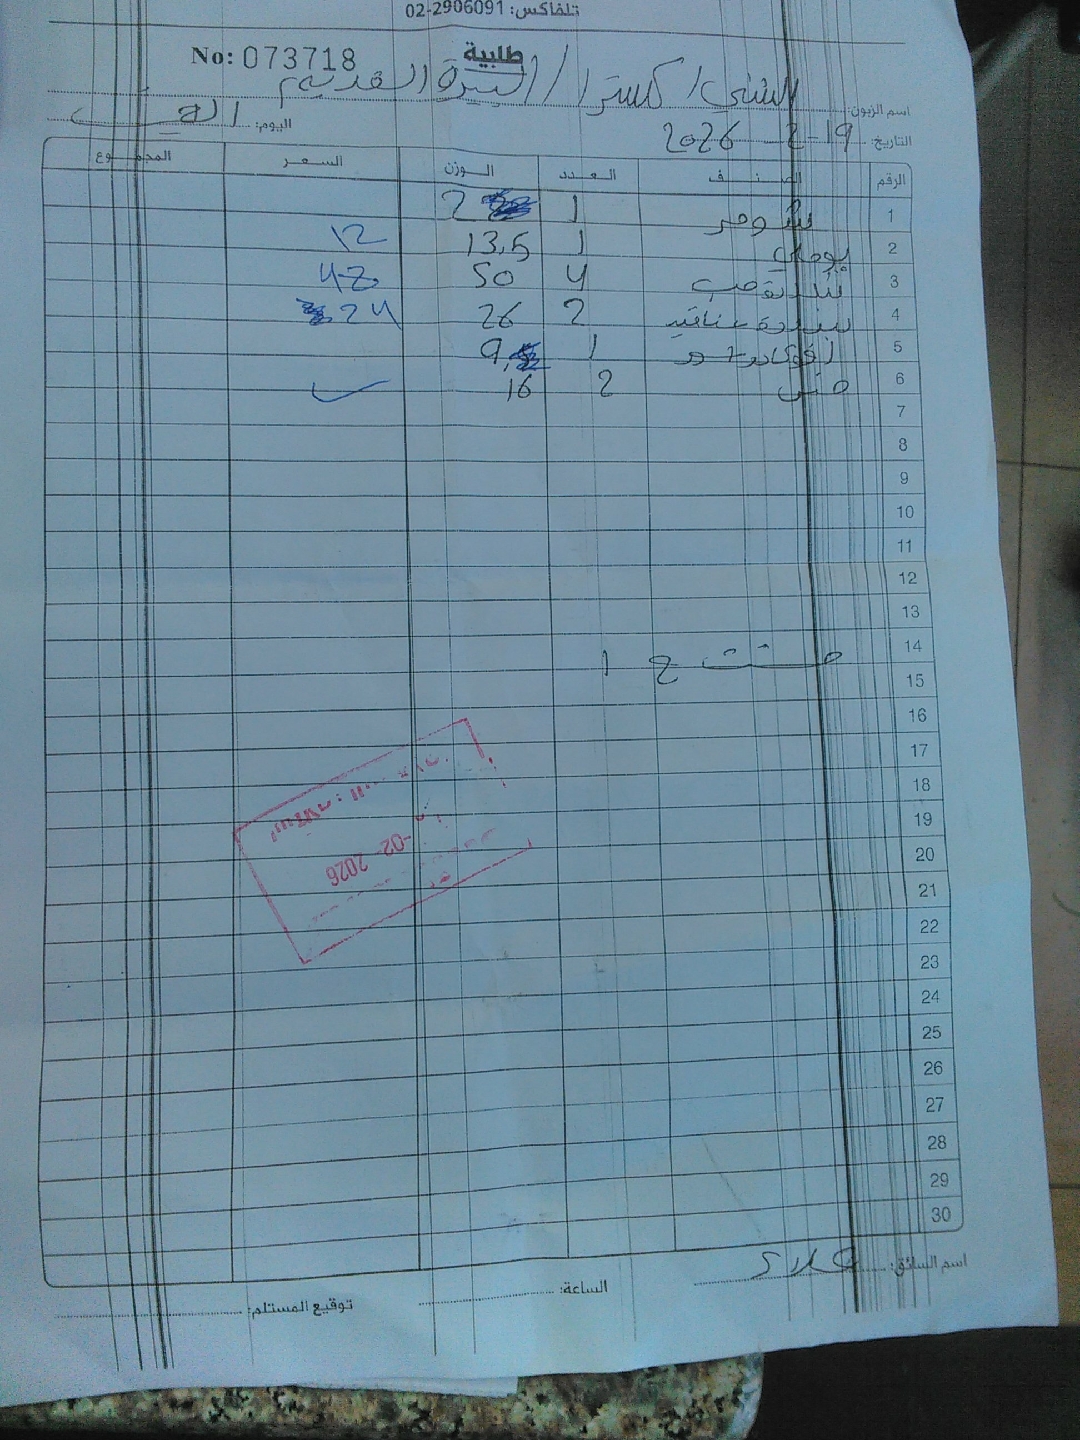 تلفاكس: 02-2906091
No: 073718 طلبية
اسم الزبون: الشني / اكسترا / البيرة القديم
التاريخ: 19-2-2026 اليوم:
الرقم الصنف العدد الوزن السعر المجموع
1 شومر 1 2
2 بوملي 1 13.5 12
3 4 50 42
4 بندورة عناقيد 2 26 24
5 1 9
6 خس 2 16
7
8
9
10
11
12
13
14 ح 1
15
16
17
18
19
20
21
22
23
24
25
26
27
28
29
30
02- 2026
اسم السائق: علاء الساعة: توقيع المستلم: